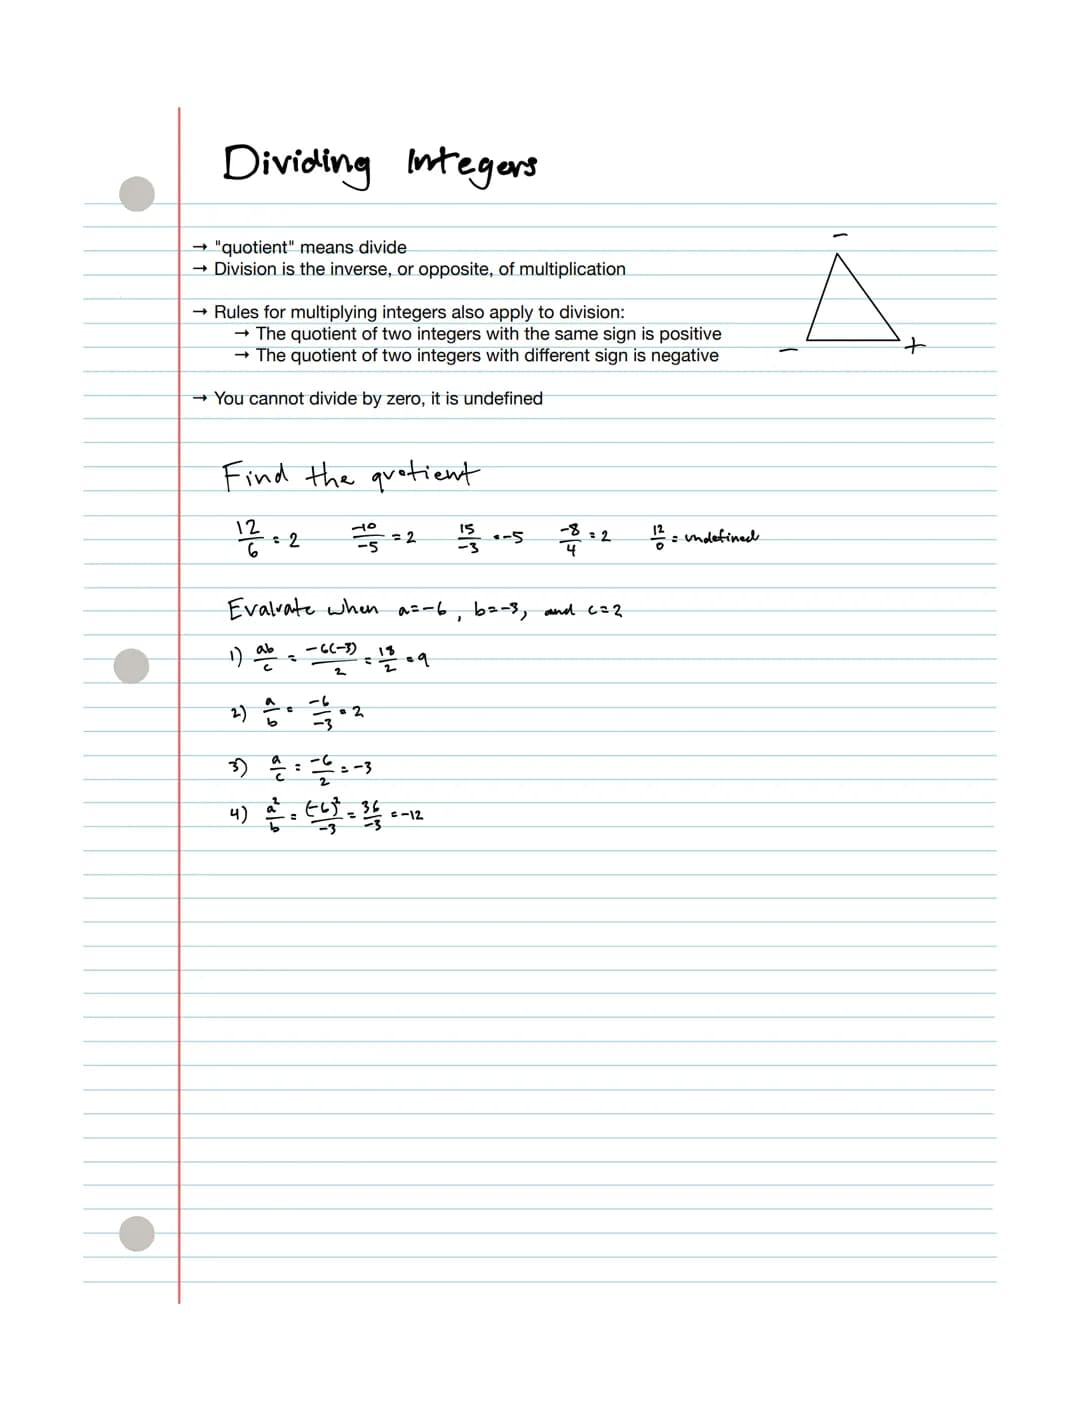 Dividing Integers
→ "quotient" means divide
→ Division is the inverse, or opposite, of multiplication
→ Rules for multiplying integers also apply to division:
→ The quotient of two integers with the same sign is positive
→ The quotient of two integers with different sign is negative
→ You cannot divide by zero, it is undefined
−
− +
Find the quotient
12/6 = 2 -10/-5 = 2 15/-3 = -5 -8/4 = 2 12/0 = undefined
Evaluate when a=-6, b=-3, and c=2
1) ab/c = -6(-3)/2 = 18/2 = 9
2) a/b = -6/-3 = 2
3) a/c = -6/2 = -3
4) a²/b = (-6)²/-3 = 36/-3 = -12